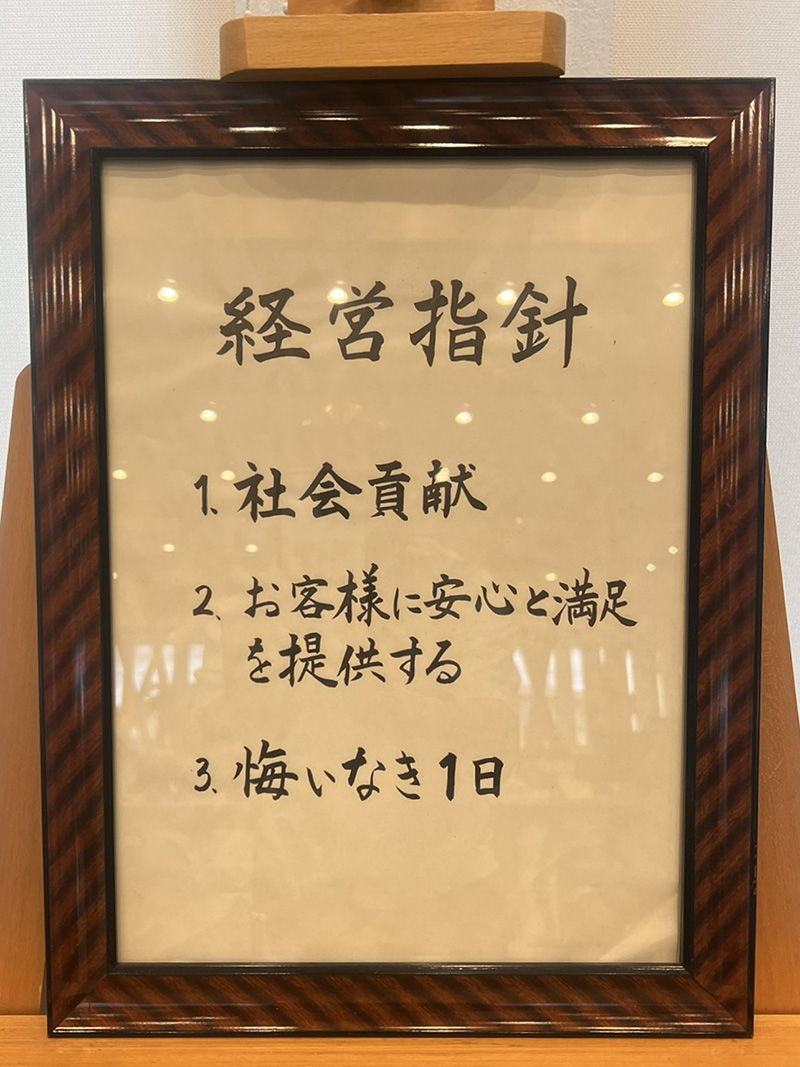 経営指針
1. 社会貢献
2. お客様に安心と満足
を提供する
3. 悔いなき1日